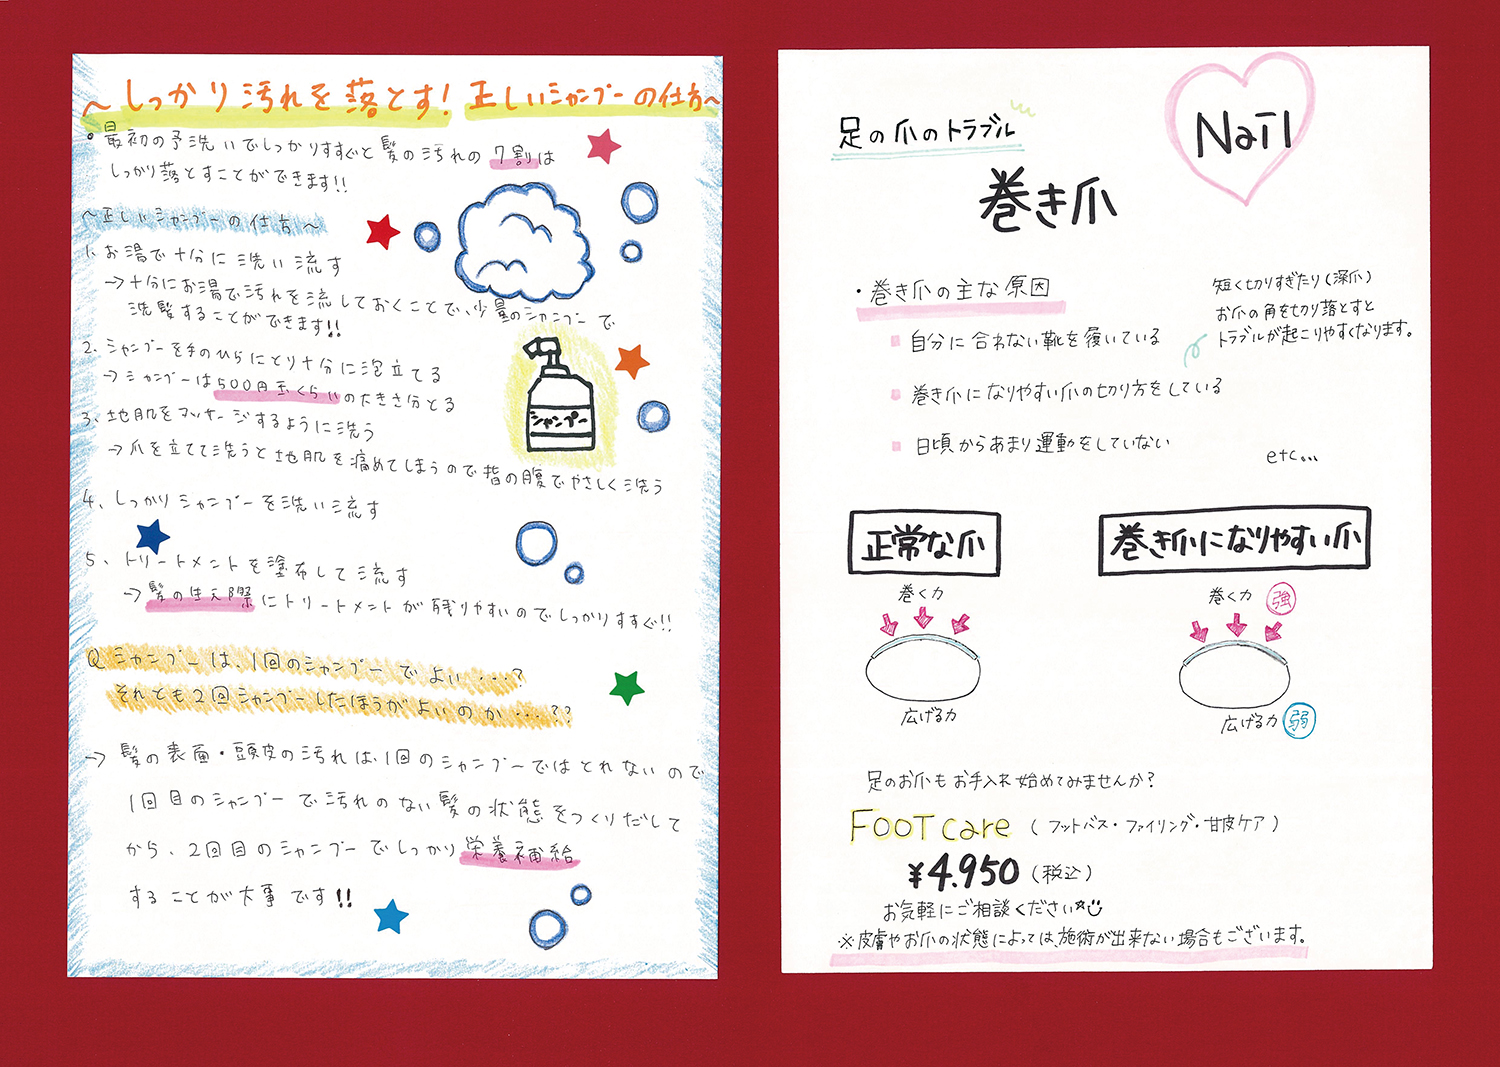 〜しっかり汚れを落とす! 正しいシャンプーの仕方〜
。最初の予洗いでしっかりすすぐと髪の汚れの7割は
しっかり落とすことができます!!
〜正しいシャンプーの仕方〜
1、お湯で十分に洗い流す
→十分にお湯で汚れを流しておくことで、少量のシャンプーで
洗髪することができます!!
2、シャンプーを手のひらにとり十分に泡立てる
→シャンプーは500円玉くらいの大きさ分とる
3、地肌をマッサージするように洗う
→爪を立てて洗うと地肌を痛めてしまうので指の腹でやさしく洗う
4、しっかりシャンプーを洗い流す
5、トリートメントを塗布して流す
→髪の生え際にトリートメントが残りやすいのでしっかりすすぐ!!
シャンプー
Q シャンプーは、1回のシャンプーでよい…?
それとも2回シャンプーしたほうがよいのか…??
→髪の表面・頭皮の汚れは、1回のシャンプーではとれないので
1回目のシャンプーで汚れのない髪の状態をつくりだして
から、2回目のシャンプーでしっかり栄養補給
することが大事です!!
Nail
足の爪のトラブル
巻き爪
・巻き爪の主な原因
自分に合わない靴を履いている
巻き爪になりやすい爪の切り方をしている
日頃からあまり運動をしていない
etc...
短く切りすぎたり(深爪)
お爪の角を切り落とすと
トラブルが起こりやすくなります。
正常な爪
巻く力
広げる力
巻き爪になりやすい爪
巻く力 強
広げる力 弱
足のお爪もお手入れ始めてみませんか?
FOOT care (フットバス・ファイリング・甘皮ケア)
¥4.950(税込)
お気軽にご相談ください
※皮膚やお爪の状態によっては、施術が出来ない場合もございます。